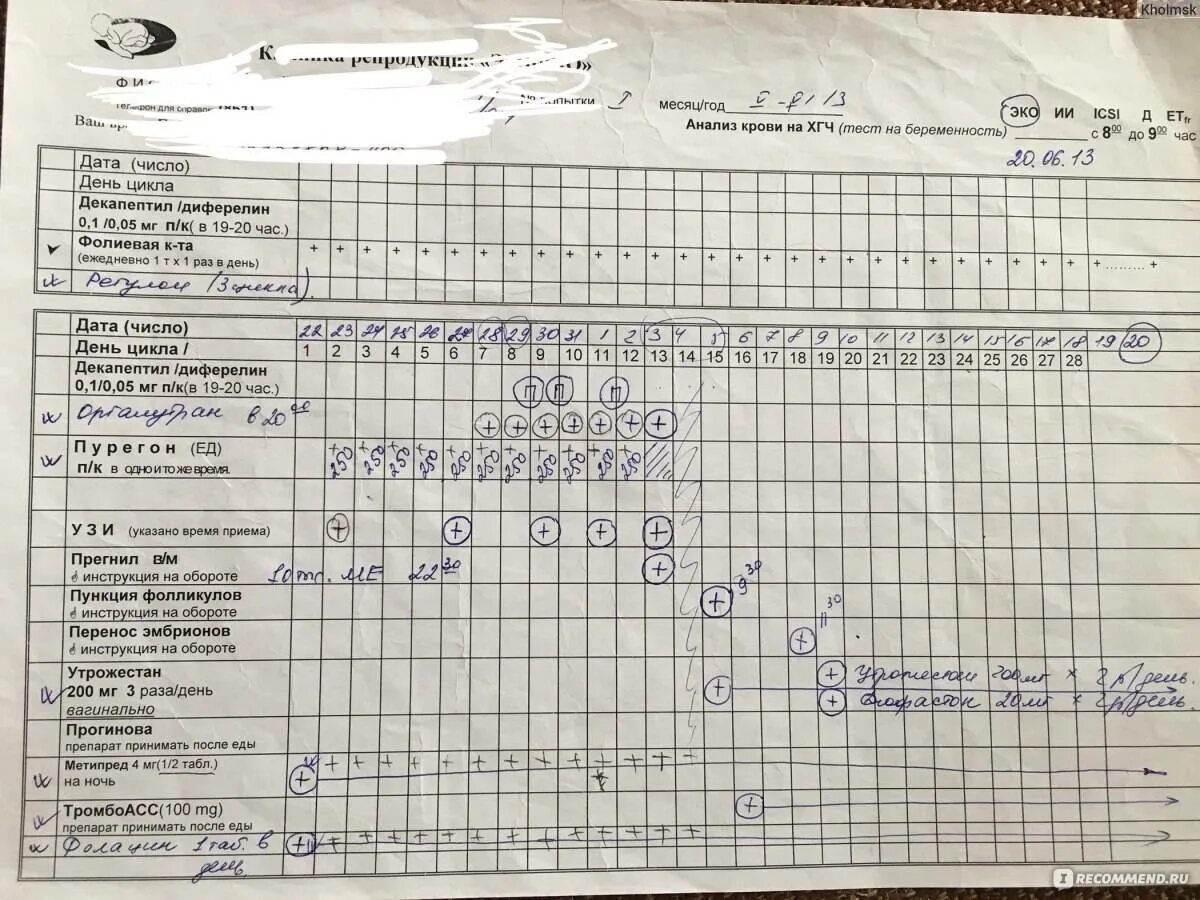 Kholmsk
репродукции
Телефон для справок
№ попытки I месяц/год V-VI 13 ЭКО ИИ ICSI Д ETfr
Анализ крови на ХГЧ (тест на беременность) с 8⁰⁰ до 9⁰⁰ час
20.06.13
Дата (число)
День цикла
Декапептил /диферелин
0,1 /0,05 мг п/к( в 19-20 час.)
Фолиевая к-та + + + + + + + + + + + + + + + + + + + + + + + + + + + + + ......... +
(ежедневно 1 т х 1 раз в день)
Регулон (3 цикла)
Дата (число) 22 23 24 25 26 27 28 29 30 31 1 2 3 4 5 6 7 8 9 10 11 12 13 14 15 16 17 18 19 20
День цикла / 1 2 3 4 5 6 7 8 9 10 11 12 13 14 15 16 17 18 19 20 21 22 23 24 25 26 27 28
Декапептил /диферелин
0,1/0,05 мг п/к(в 19-20 час.) П П П
Оргалутран в 20⁰⁰ + + + + + + +
Пурегон (ЕД) + + + + + + + + + + +
п/к в одно и то же время. 250 250 250 250 250 250 250 250 250 250 250
УЗИ (указано время приема) + + + + +
Прегнил в/м
инструкция на обороте 10 т. МЕ 22³⁰ +
Пункция фолликулов + 9³⁰
инструкция на обороте
Перенос эмбрионов + 11³⁰
инструкция на обороте
Утрожестан + Утрожестан 200мг х 2 р/день.
200 мг 3 раза/день + + Дюфастон 20мг х 2 р/день.
вагинально
Прогинова
препарат принимать после еды
Метипред 4 мг(1/2 табл.) + + + + + + + + + + + + + +
на ночь +
ТромбоАСС(100 mg) +
препарат принимать после еды
Фолацин 1 таб. в + + + + + + + + + + + + + +
день
IRECOMMEND.RU